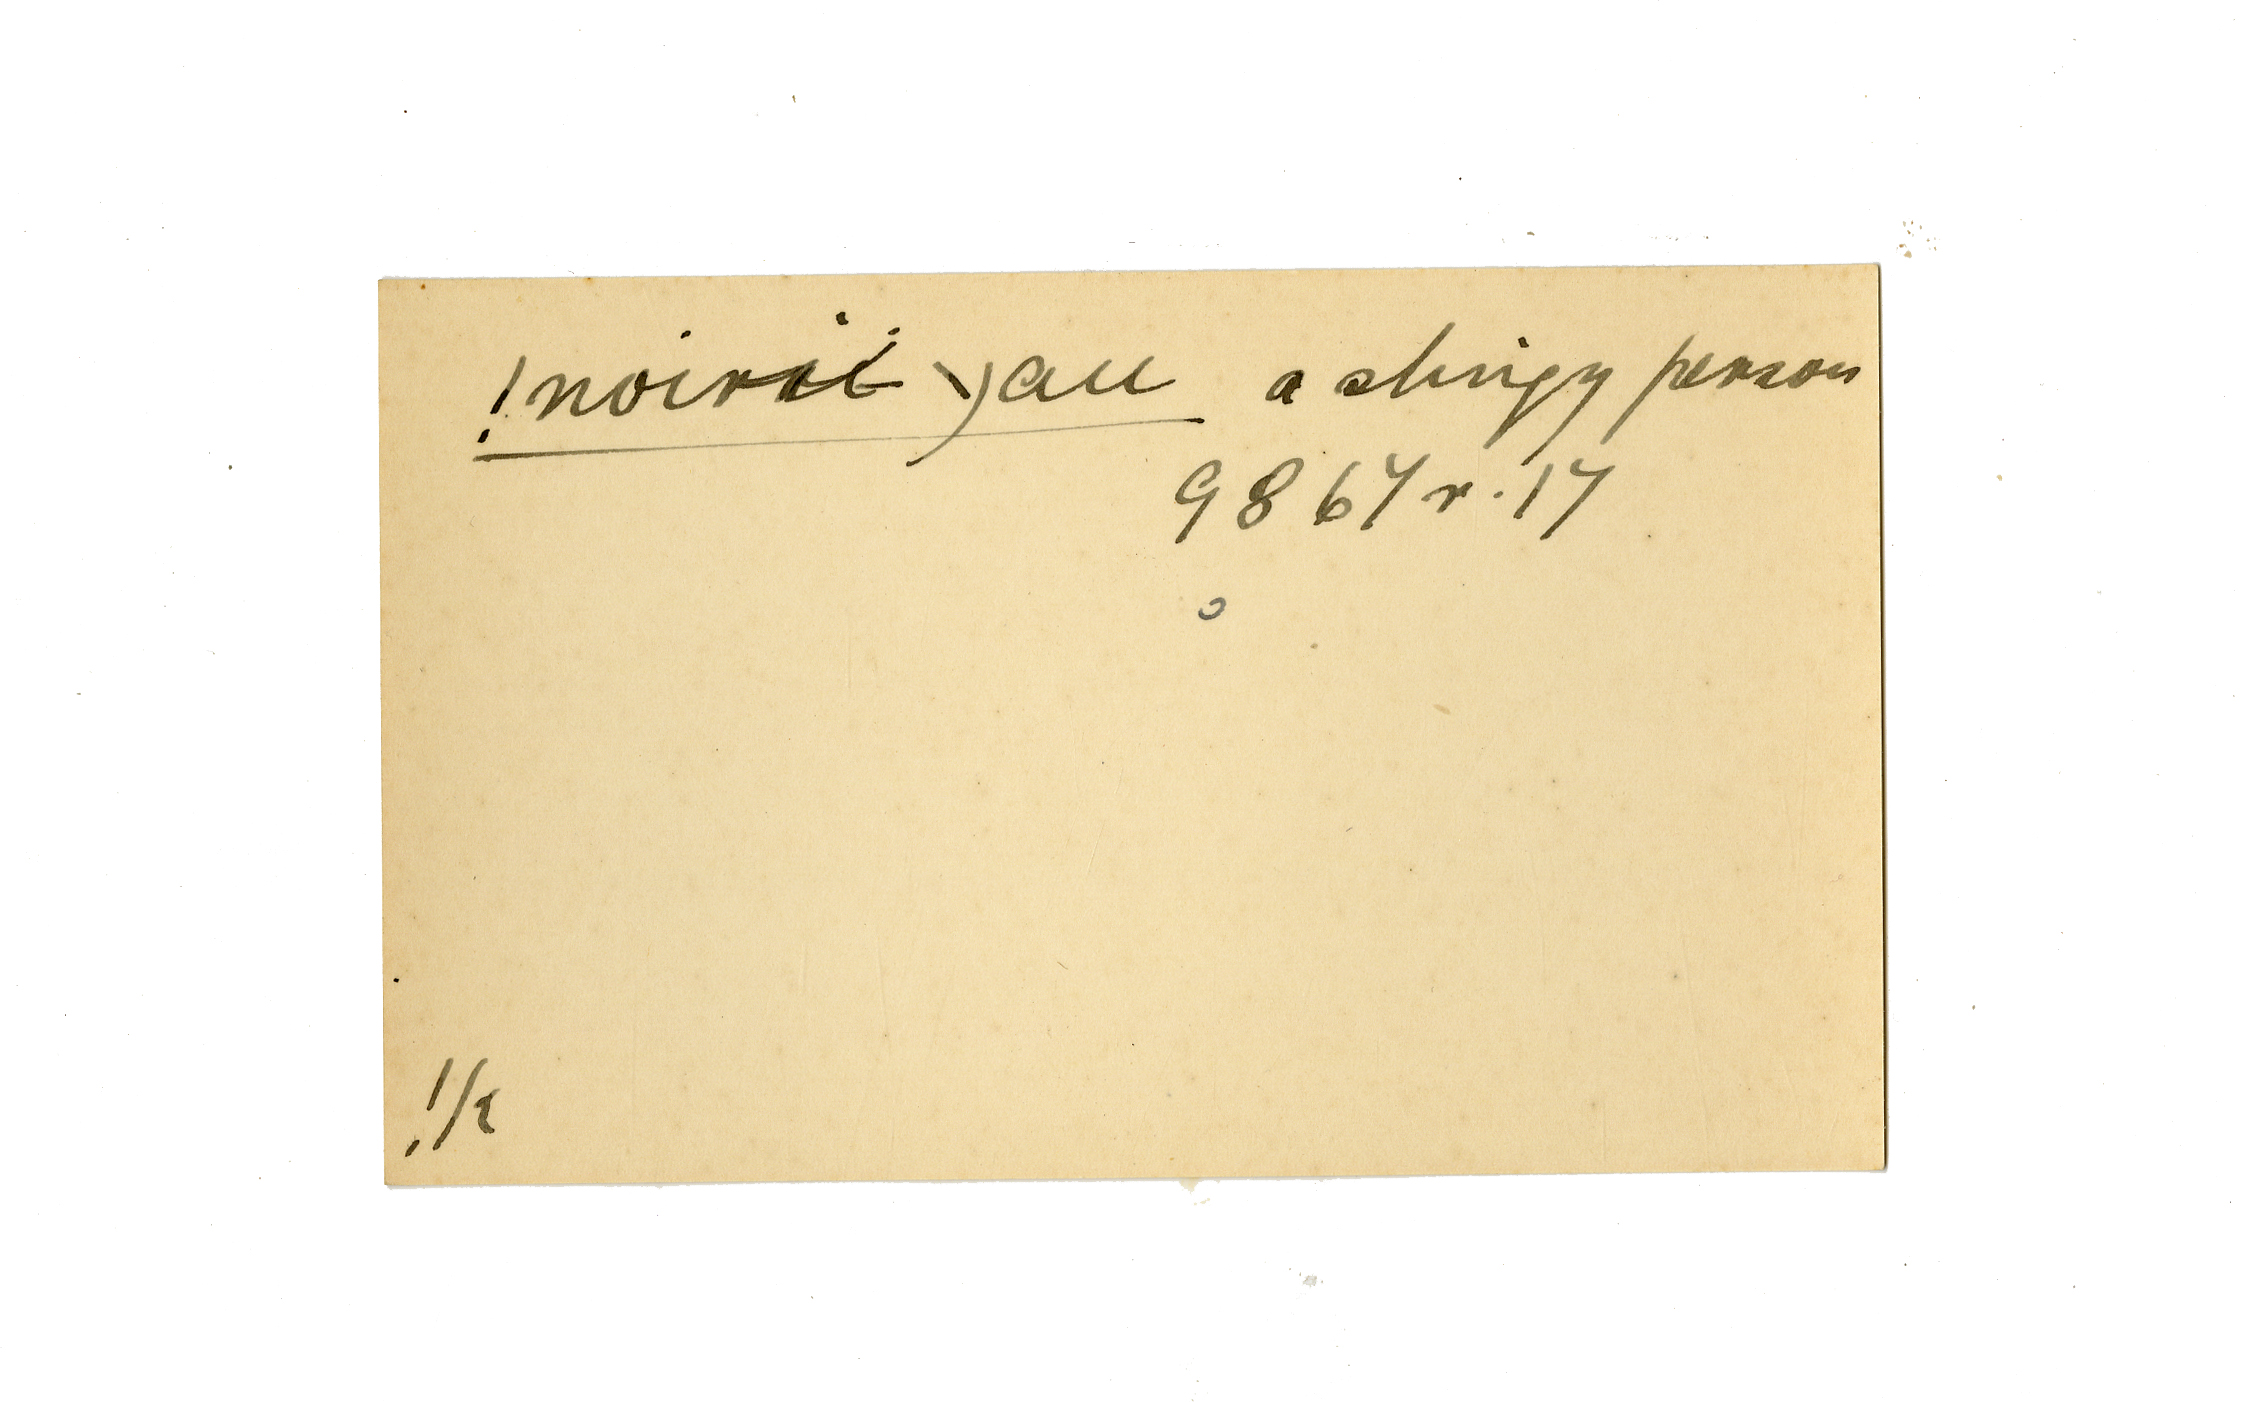 !noirɑi \)au a stingy person
9867r.17
!/ɛ